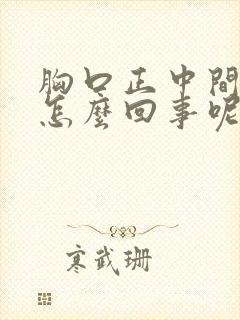 胸口正中間
怎麼回事呢
寒武珊